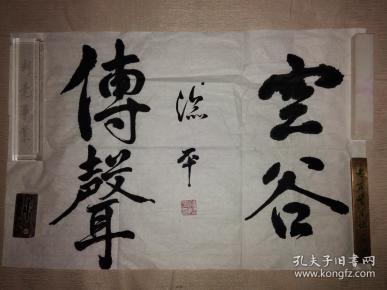 空谷
傳聲
平
孔夫子旧书网
www.kongfz.com